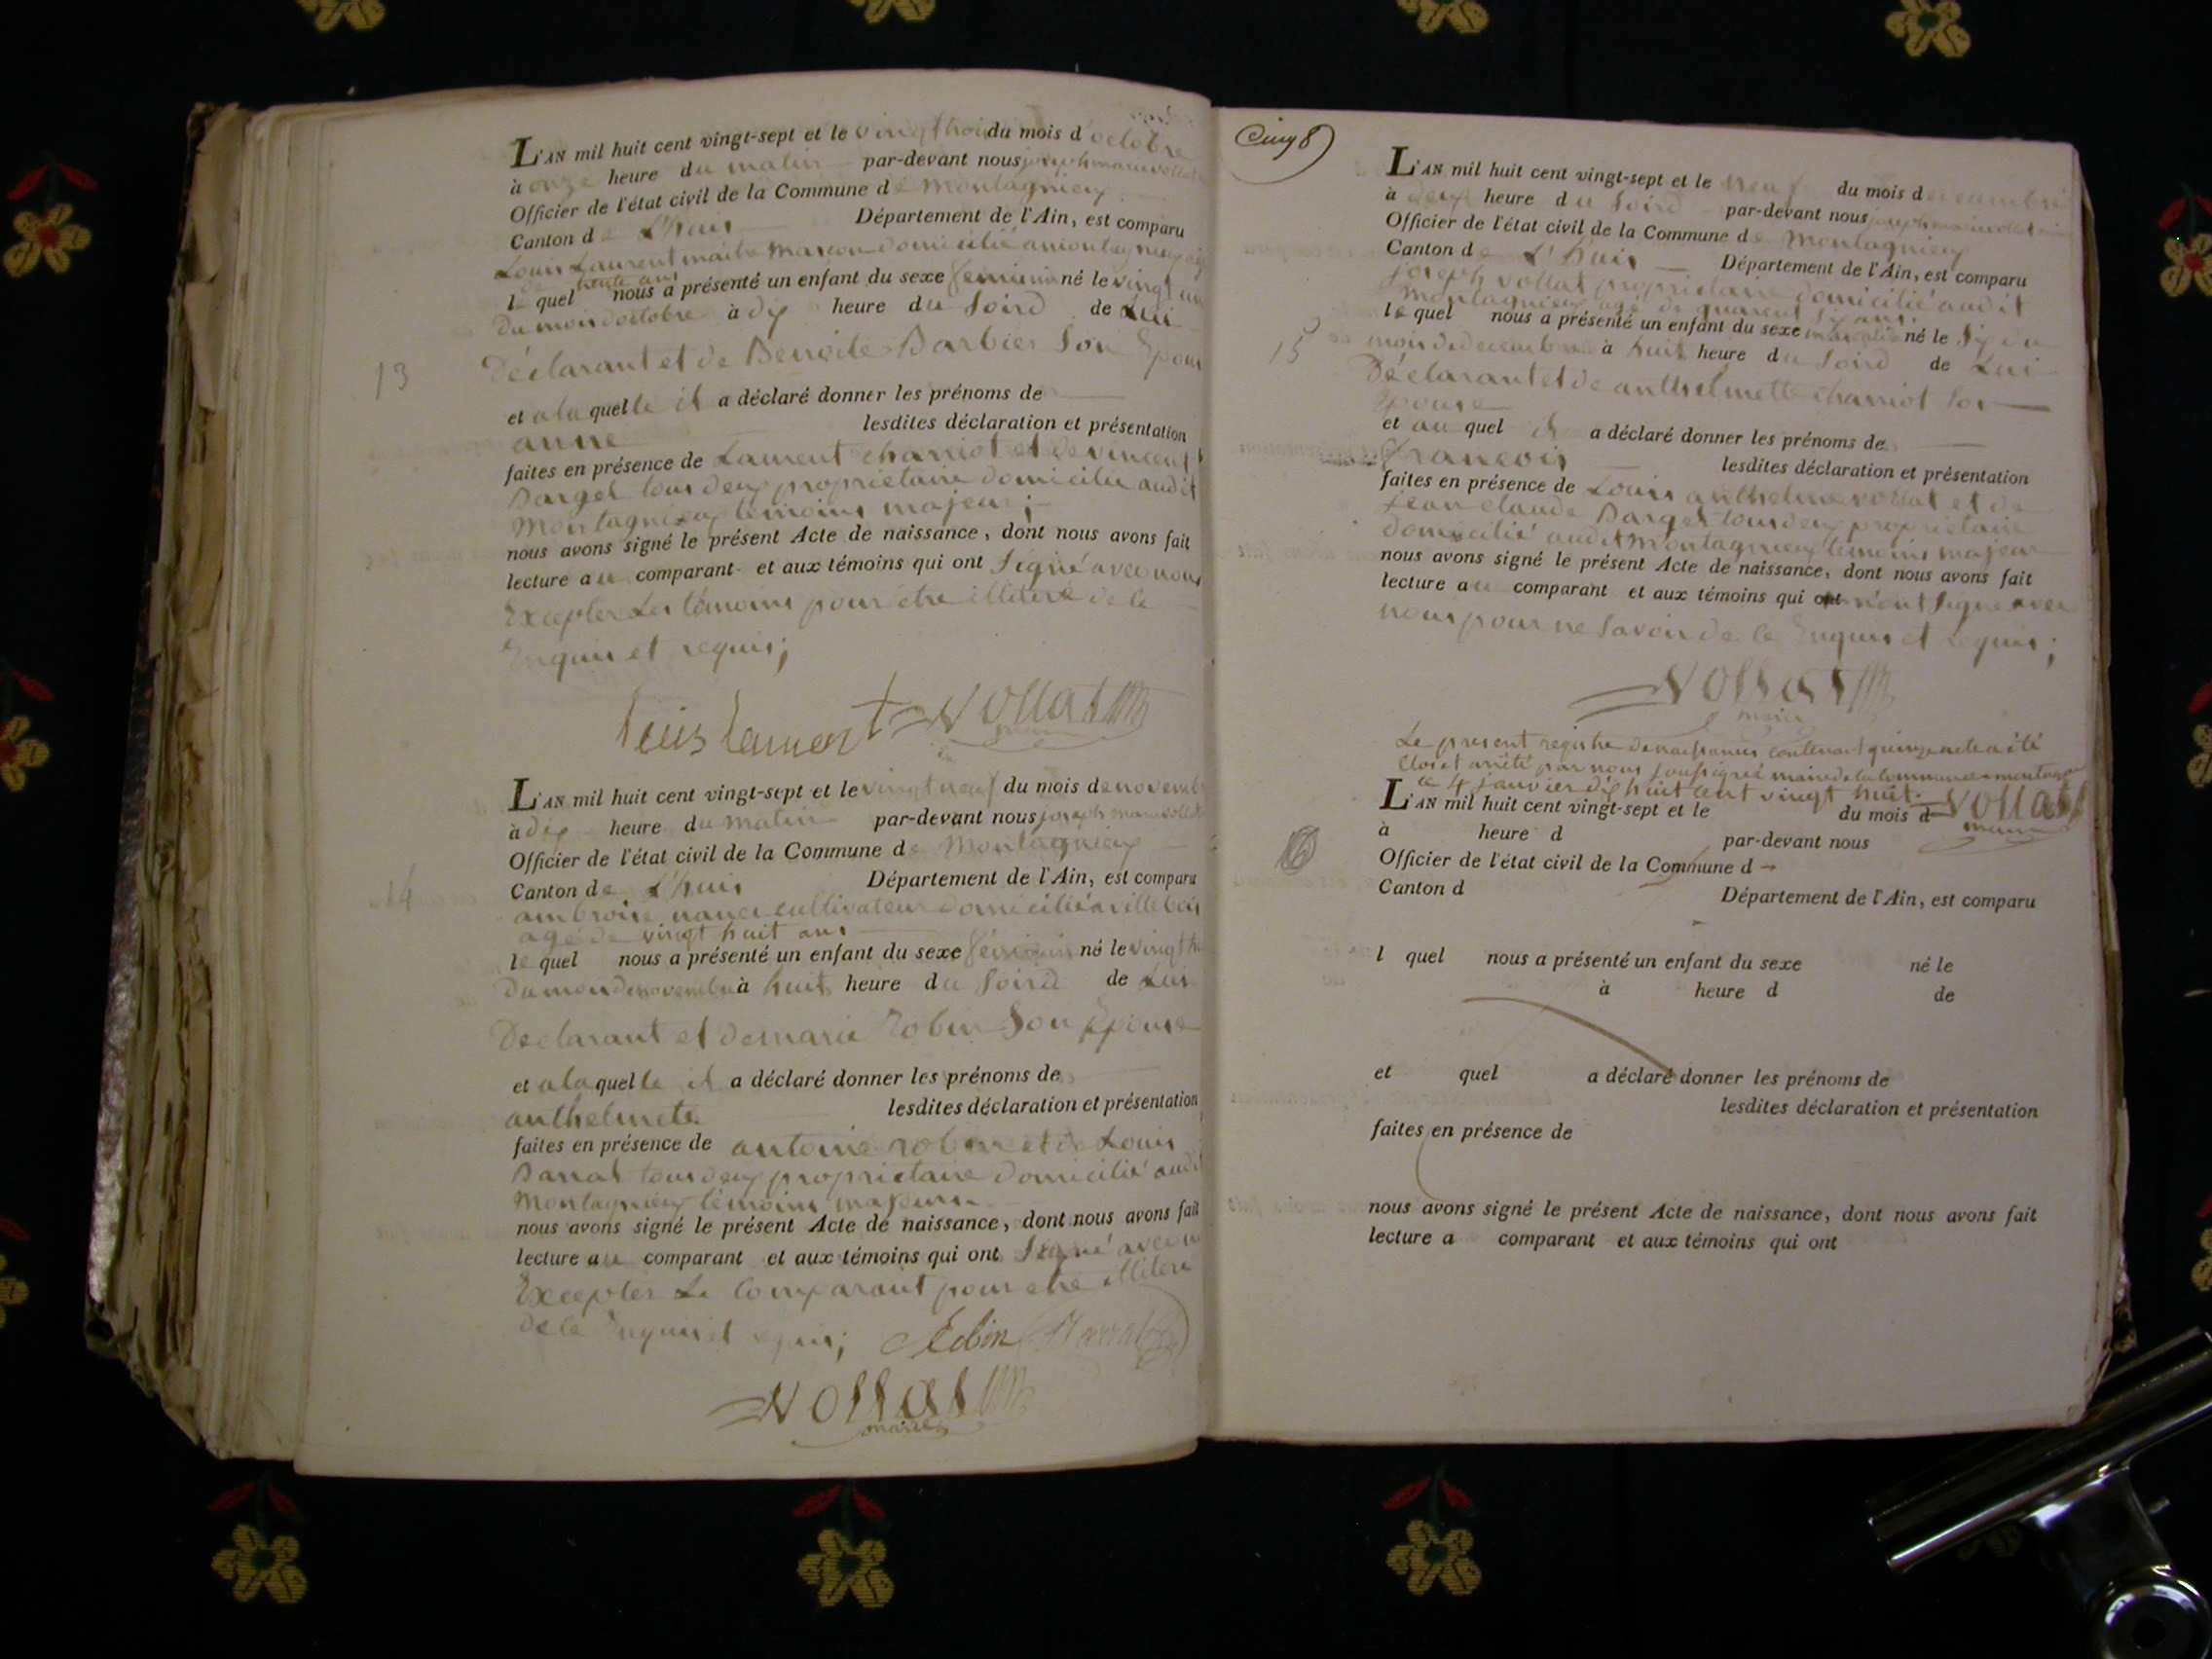 L'AN mil huit cent vingt-sept et le vingt trois du mois d'octobre
à onze heure du matin par-devant nous joseph marie vollat
Officier de l'état civil de la Commune de Montagnieu
Canton de L'huis Département de l'Ain, est comparu
Louis Laurent maitre masson domicilié a montagnieu
de trente ans
le quel nous a présenté un enfant du sexe feminin né le vingt un
du mois d'octobre à dix heure du soird de Lui
13
Déclarant et de Benoite Barbier Son Epouse
et a la quelle il a déclaré donner les prénoms de
anne lesdites déclaration et présentation
faites en présence de Laurent charriot et de vincent
Darget tous deux proprietaire domicilié audit
Montagnieux témoins majeur;
nous avons signé le présent Acte de naissance, dont nous avons fait
lecture au comparant et aux témoins qui ont Signé avec nous
Excepter Les témoins pour etre illiteré de le
Enquis et requis;
Louis Laurent Vollat
L'AN mil huit cent vingt-sept et le vingt neuf du mois de novemb
à dix heure du matin par-devant nous joseph marie vollat
Officier de l'état civil de la Commune de Montagnieux
14
Canton de L'huis Département de l'Ain, est comparu
ambroise cultivateur domicilié a villebois
agé de vingt huit ans
le quel nous a présenté un enfant du sexe féminin né le vingt
du mois de novembre à huit heure du soird de Lui
Declarant et de marie Robin Son Epouse
et a la quelle il a déclaré donner les prénoms de
anthelmete lesdites déclaration et présentation
faites en présence de antoine robin et de Louis
Barrat tous deux proprietaire domicilié audit
Montagnieux témoins majeurs
nous avons signé le présent Acte de naissance, dont nous avons fait
lecture au comparant et aux témoins qui ont Signé avec n
Excepter Le Comparant pour etre illiteré
de le Enquis et requis; Robin Barrat
Vollat
maire
Cinq 8
L'AN mil huit cent vingt-sept et le neuf du mois de decembre
à deux heure du soird par-devant nous joseph marie vollat
Officier de l'état civil de la Commune de Montagnieux
Canton de L'huis Département de l'Ain, est comparu
joseph vollat proprietaire domicilié audit
Montagnieux agé de quarent six ans
le quel nous a présenté un enfant du sexe masculin né le Six du
15
mois de decembre à huit heure du soird de Lui
Déclarant et de anthelmette charriot Son
Epouse
et au quel il a déclaré donner les prénoms de
francois lesdites déclaration et présentation
faites en présence de Louis anthelme vollat et de
jean claude Darget tous deux proprietaire
domicilié audit Montagnieux témoins majeur
nous avons signé le présent Acte de naissance, dont nous avons fait
lecture au comparant et aux témoins qui ont n'ont Signé avec
nous pour ne Savoir de le Enquis et requis;
Vollat
maire
Le present registre de naissances contenant quinze acte a été
Clos et arrêté par nous soussigné maire de la commune de montagnieu
le 4 janvier dix huit cent vingt huit. Vollat
maire
L'AN mil huit cent vingt-sept et le du mois d
à heure d par-devant nous
Officier de l'état civil de la Commune d
Canton d Département de l'Ain, est comparu
l quel nous a présenté un enfant du sexe né le
à heure d de
et quel a déclaré donner les prénoms de
lesdites déclaration et présentation
faites en présence de
nous avons signé le présent Acte de naissance, dont nous avons fait
lecture a comparant et aux témoins qui ont